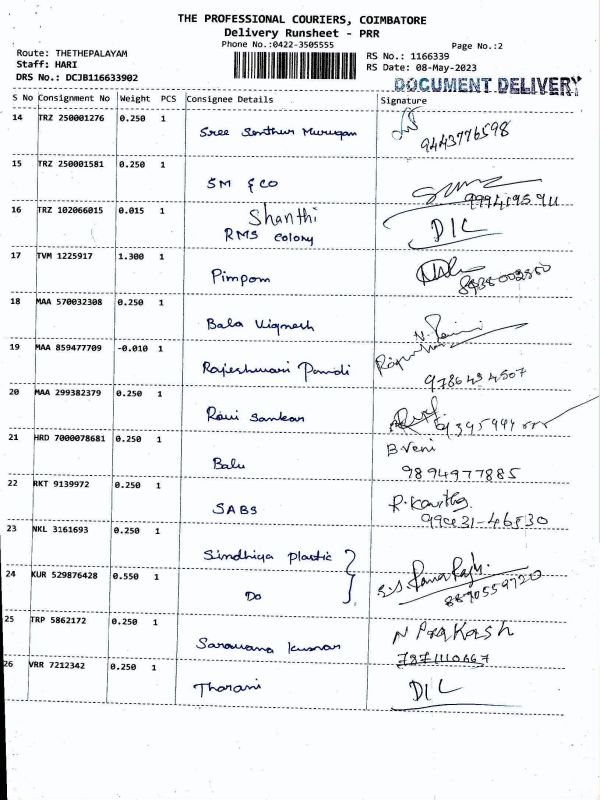 THE PROFESSIONAL COURIERS, COIMBATORE
Delivery Runsheet - PRR
Phone No.:0422-3505555
Page No.:2
Route: THETHEPALAYAM
Staff: HARI
DRS No.: DCJB116633902
RS No.: 1166339
RS Date: 08-May-2023
DOCUMENT DELIVERY
S No Consignment No Weight PCS Consignee Details Signature
14 TRZ 250001276 0.250 1 Sree Senthur Murugan 9443776598
15 TRZ 250001581 0.250 1 SM & CO
16 TRZ 102066015 0.015 1 Shanthi D/L
RMS Colony
17 TVM 1225917 1.300 1 Pimpom
18 MAA 570032308 0.250 1 Bala Vignesh
19 MAA 859477709 -0.010 1 Rajeshwari Pandi
20 MAA 299382379 0.250 1 Ravi Sankar
21 HRD 7000078681 0.250 1 Balu B Veni
9894977885
22 RKT 9139972 0.250 1 SABS
23 NKL 3161693 0.250 1 Sindhiya Plastic
24 KUR 529876428 0.550 1 Do
8870559720
25 TRP 5862172 0.250 1 Saravana Kumar N Prakash
7871110667
26 VRR 7212342 0.250 1 Tharani D/L